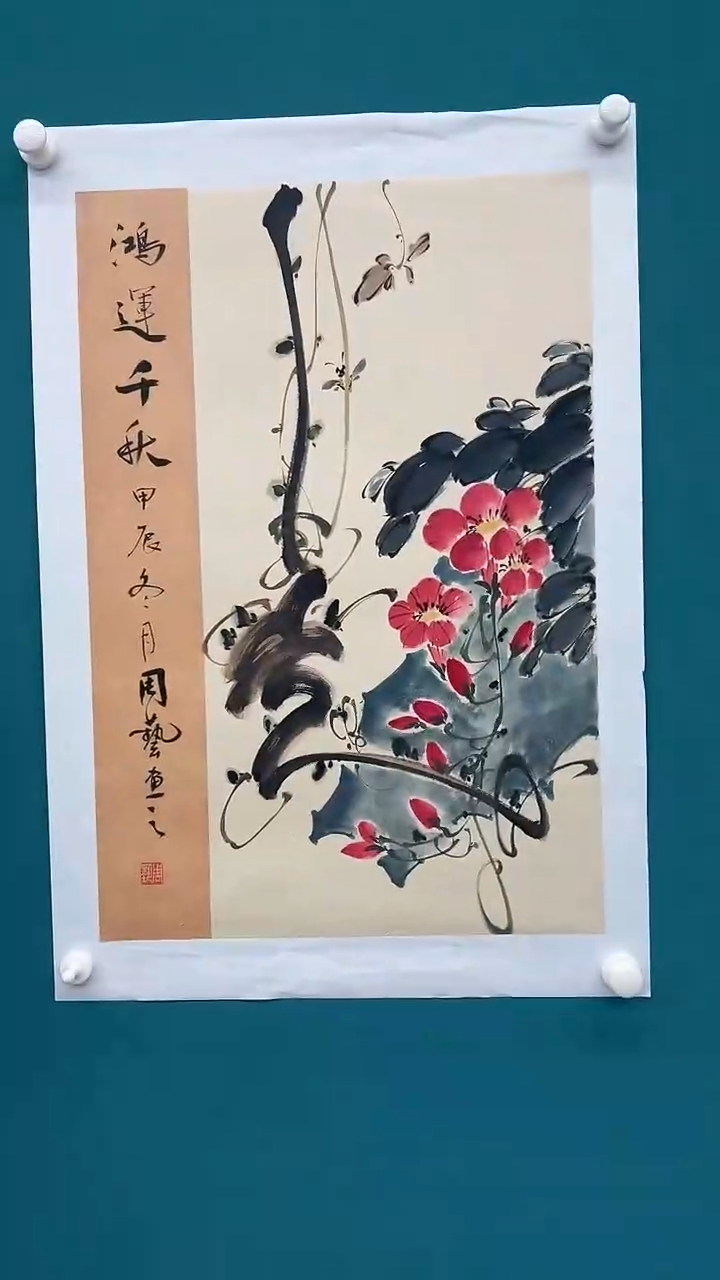 鴻運千秋甲辰冬月周藝畫之